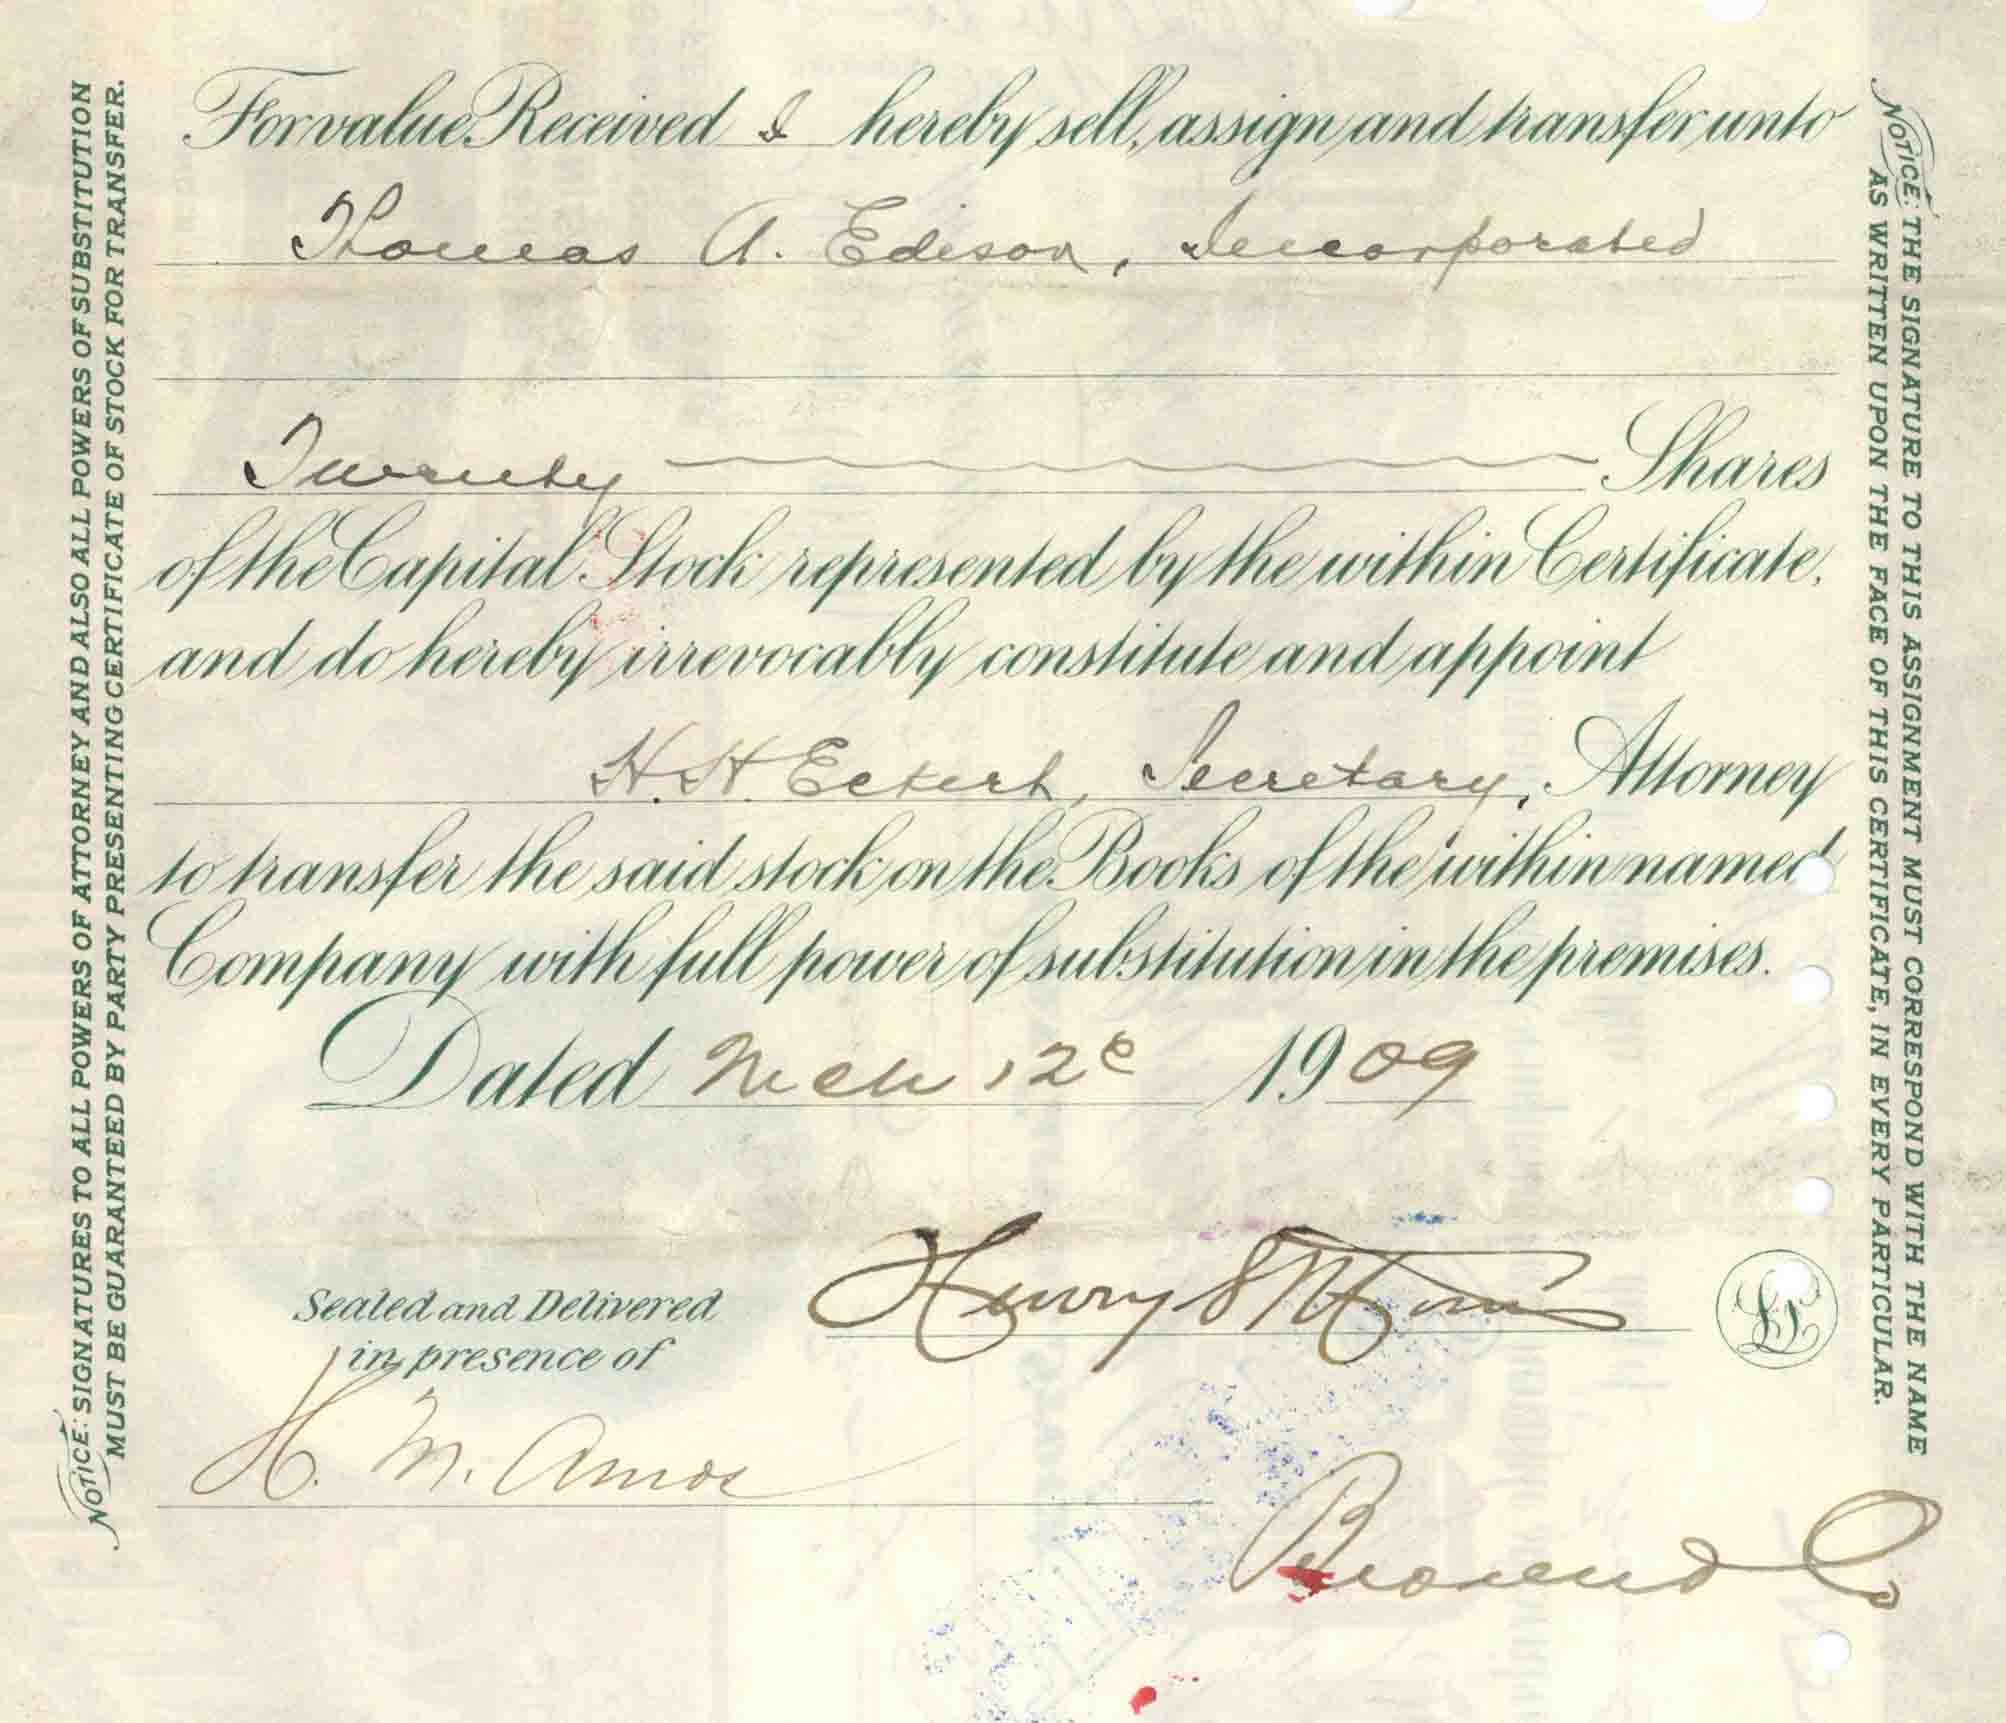 For value Received I hereby sell, assign and transfer unto
Thomas A. Edison, Incorporated
Twenty Shares
of the Capital Stock represented by the within Certificate,
and do hereby irrevocably constitute and appoint
H. H. Eckert, Secretary, Attorney
to transfer the said stock on the Books of the within named
Company with full power of substitution in the premises.
Dated Mch 12 1909
Henry
Sealed and Delivered
in presence of
H. M. Amos
NOTICE: SIGNATURES TO ALL POWERS OF ATTORNEY AND ALSO ALL POWERS OF SUBSTITUTION
MUST BE GUARANTEED BY PARTY PRESENTING CERTIFICATE OF STOCK FOR TRANSFER.
NOTICE: THE SIGNATURE TO THIS ASSIGNMENT MUST CORRESPOND WITH THE NAME
AS WRITTEN UPON THE FACE OF THIS CERTIFICATE, IN EVERY PARTICULAR.